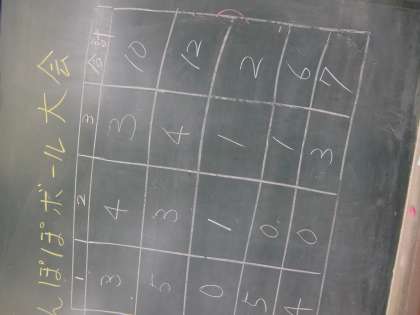 んぽぽボール大会
1 2 3 合計
3 4 3 10
5 3 4 12
0 1 1 2
5 0 1 6
4 0 3 7